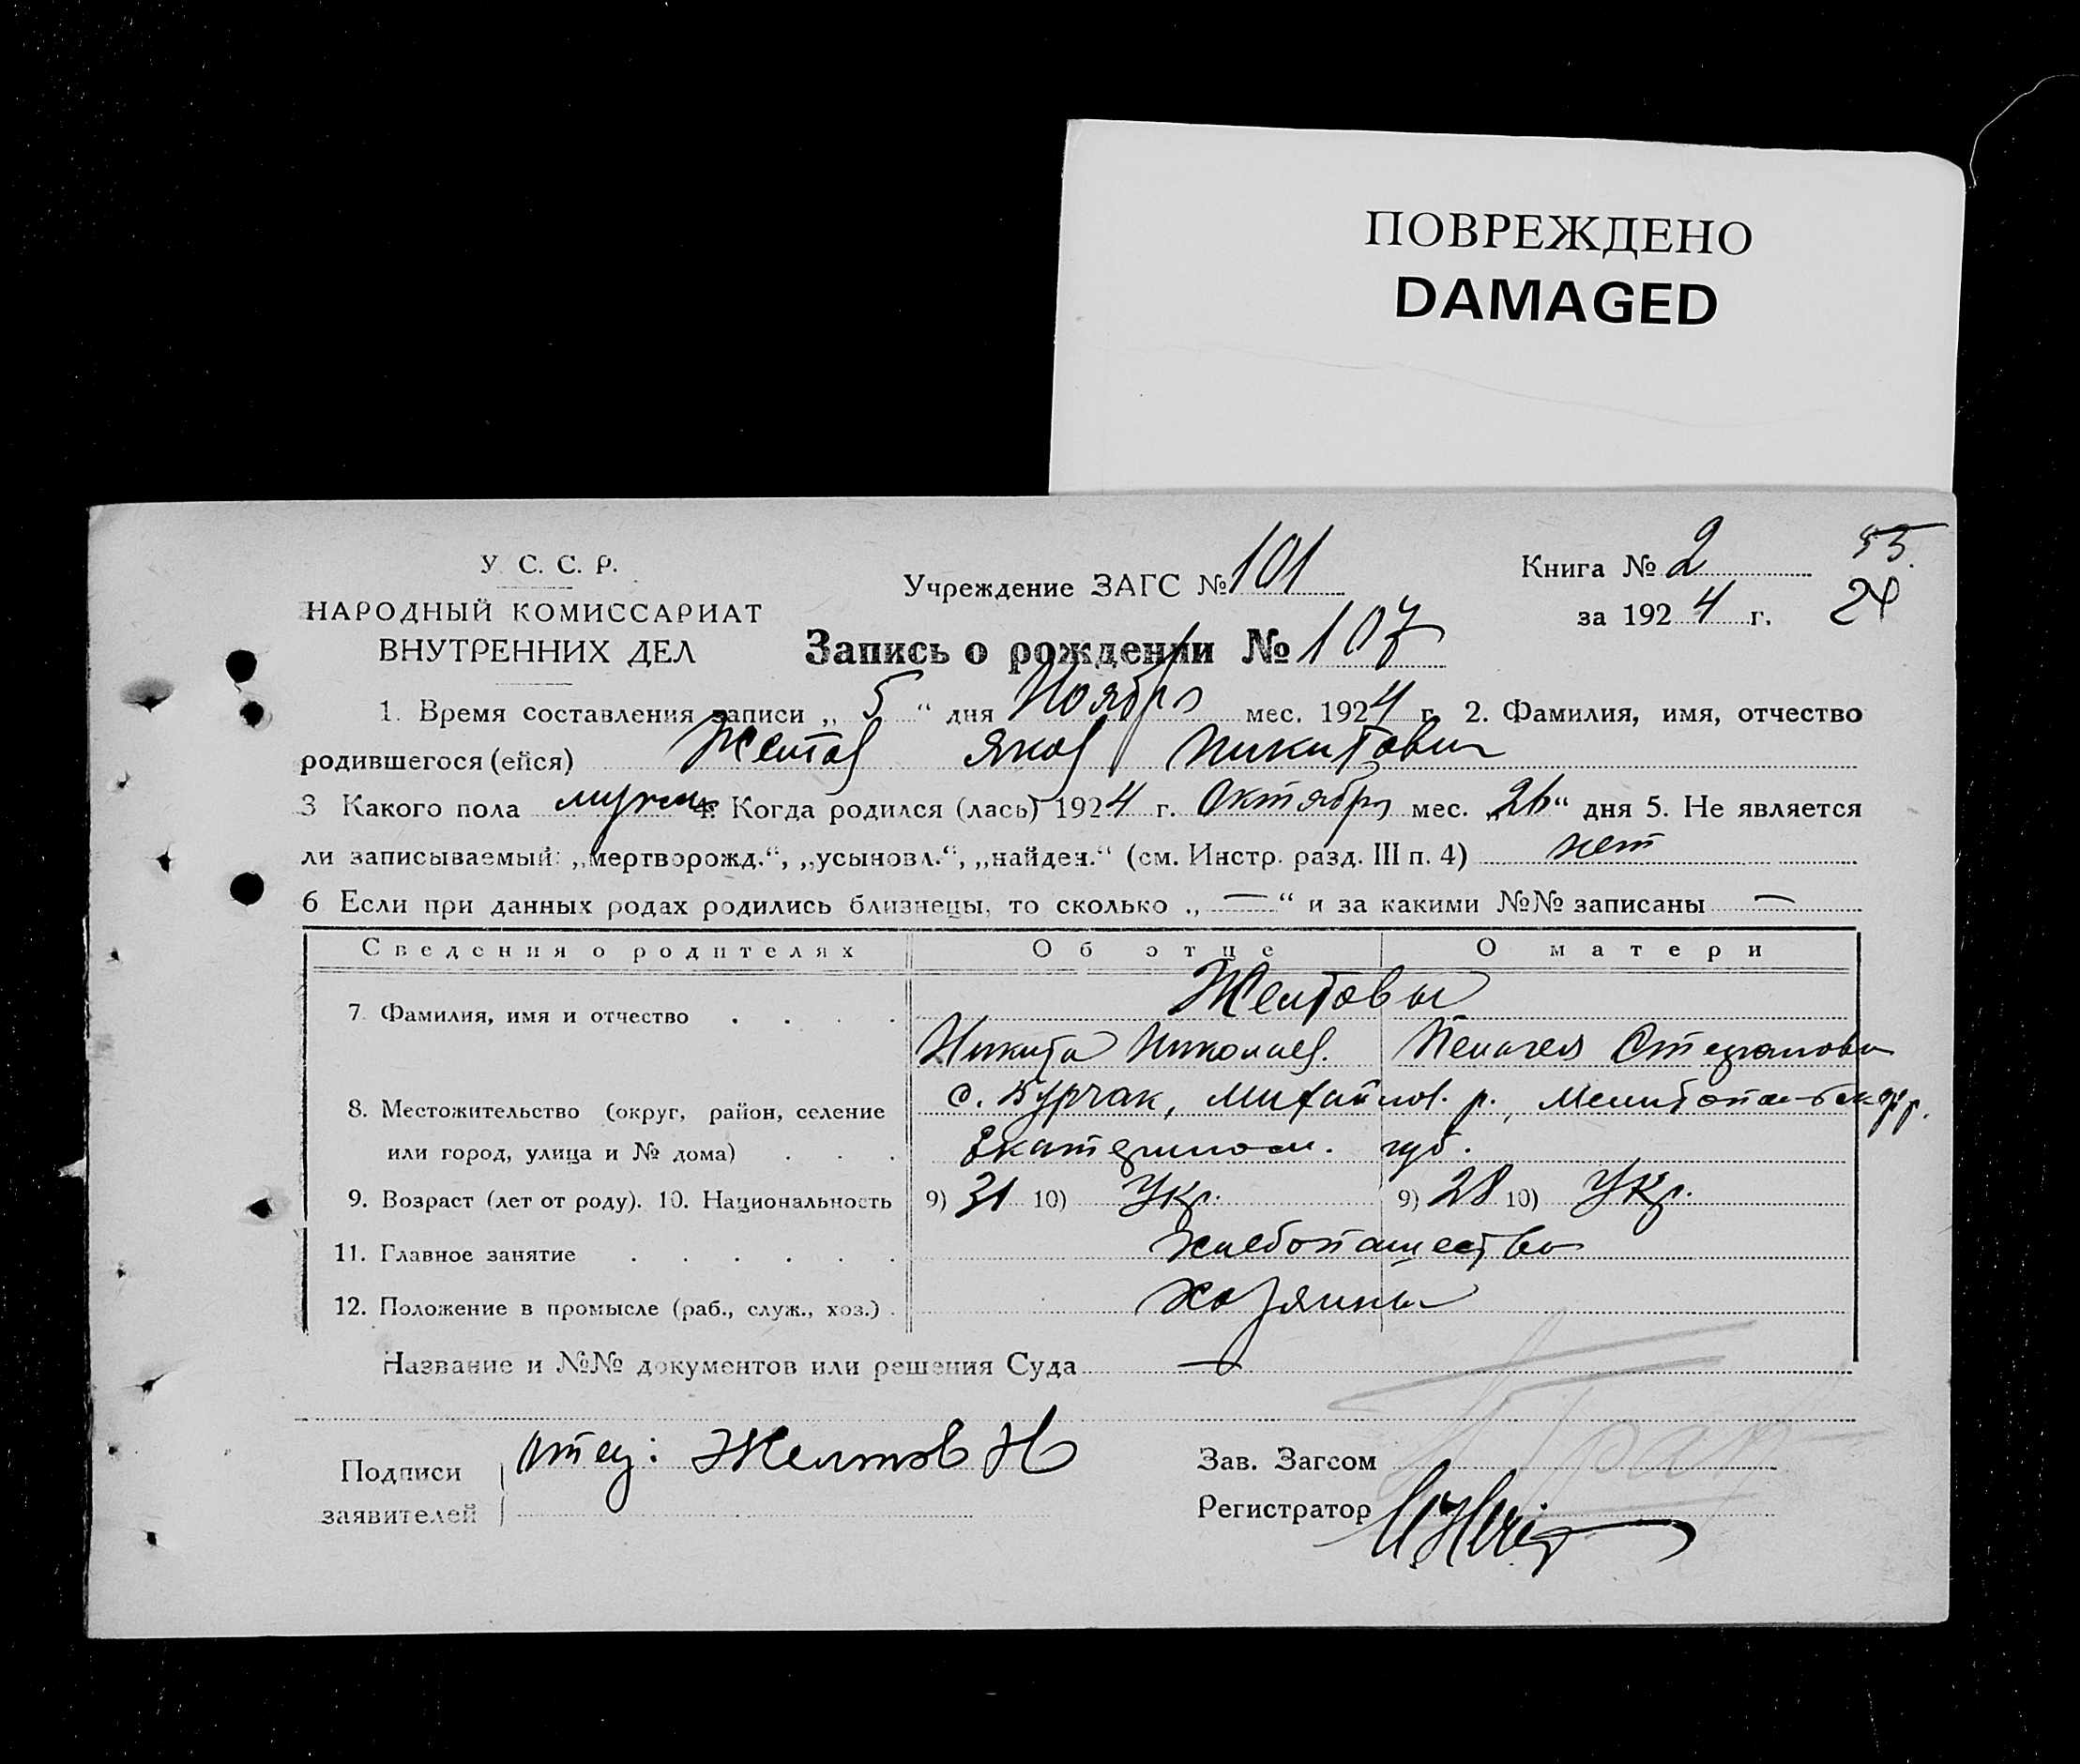 ПОВРЕЖДЕНО
DAMAGED
У. С. С. Р.
НАРОДНЫЙ КОМИССАРИАТ
ВНУТРЕННИХ ДЕЛ
Учреждение ЗАГС № 101
Книга № 2
за 1924 г.
55.
24
Запись о рождении № 107
1. Время составления записи „ 5 “ дня Ноября мес. 1924 г. 2. Фамилия, имя, отчество
родившегося (ейся) Желтов Яков Никитович
3 Какого пола мужск. 4. Когда родился (лась) 1924 г. Октября мес. „26“ дня 5. Не является
ли записываемый: „мертворожд.“, „усыновл.“, „найден.“ (см. Инстр. разд. III п. 4) нет
6 Если при данных родах родились близнецы, то сколько „ — “ и за какими №№ записаны —
Сведения о родителях Об отце О матери
7. Фамилия, имя и отчество . . . . Желтовы
Никита Николаев. Пелагея Степановна
8. Местожительство (округ, район, селение с. Бурчак, Михайлов. р., Мелитопольск. окр.
или город, улица и № дома) . . . Екатериносл. губ.
9. Возраст (лет от роду). 10. Национальность 9) 31 10) Укр. 9) 28 10) Укр.
11. Главное занятие . . . . . . Хлебопашество
12. Положение в промысле (раб., служ., хоз.) . хозяины
Название и №№ документов или решения Суда —
Подписи
заявителей
отец: Желтов Н
Зав. Загсом
Регистратор